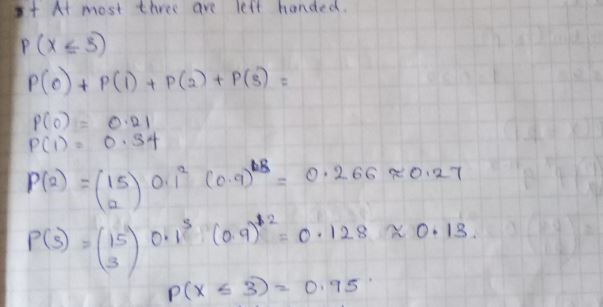 st At most three are left handed.
P(X ≤ 3)
P(0) + P(1) + P(2) + P(3) =
P(0) = 0.21
P(1) = 0.34
P(2) = (15 2) 0.1² (0.9)¹³ = 0.266 ≈ 0.27
P(3) = (15 3) 0.1³ (0.9)¹² = 0.128 ≈ 0.13.
P(X ≤ 3) = 0.95